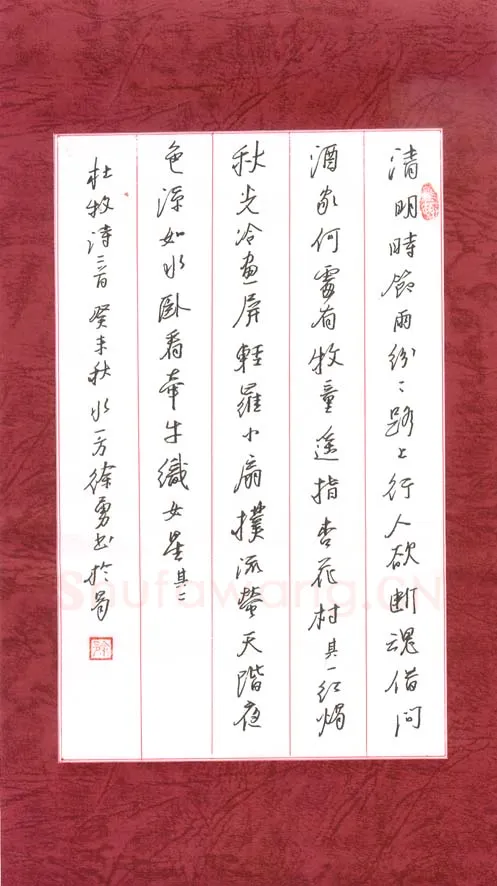 清明時節雨紛〻路上行人欲断魂借问
酒家何處有牧童遥指杏花村其一红烛
秋光冷画屏輕羅小扇撲流萤天階夜
色涼如水卧看牵牛織女星其二
杜牧诗二首癸未秋水一方徐勇书於蜀
Shufawang.CN